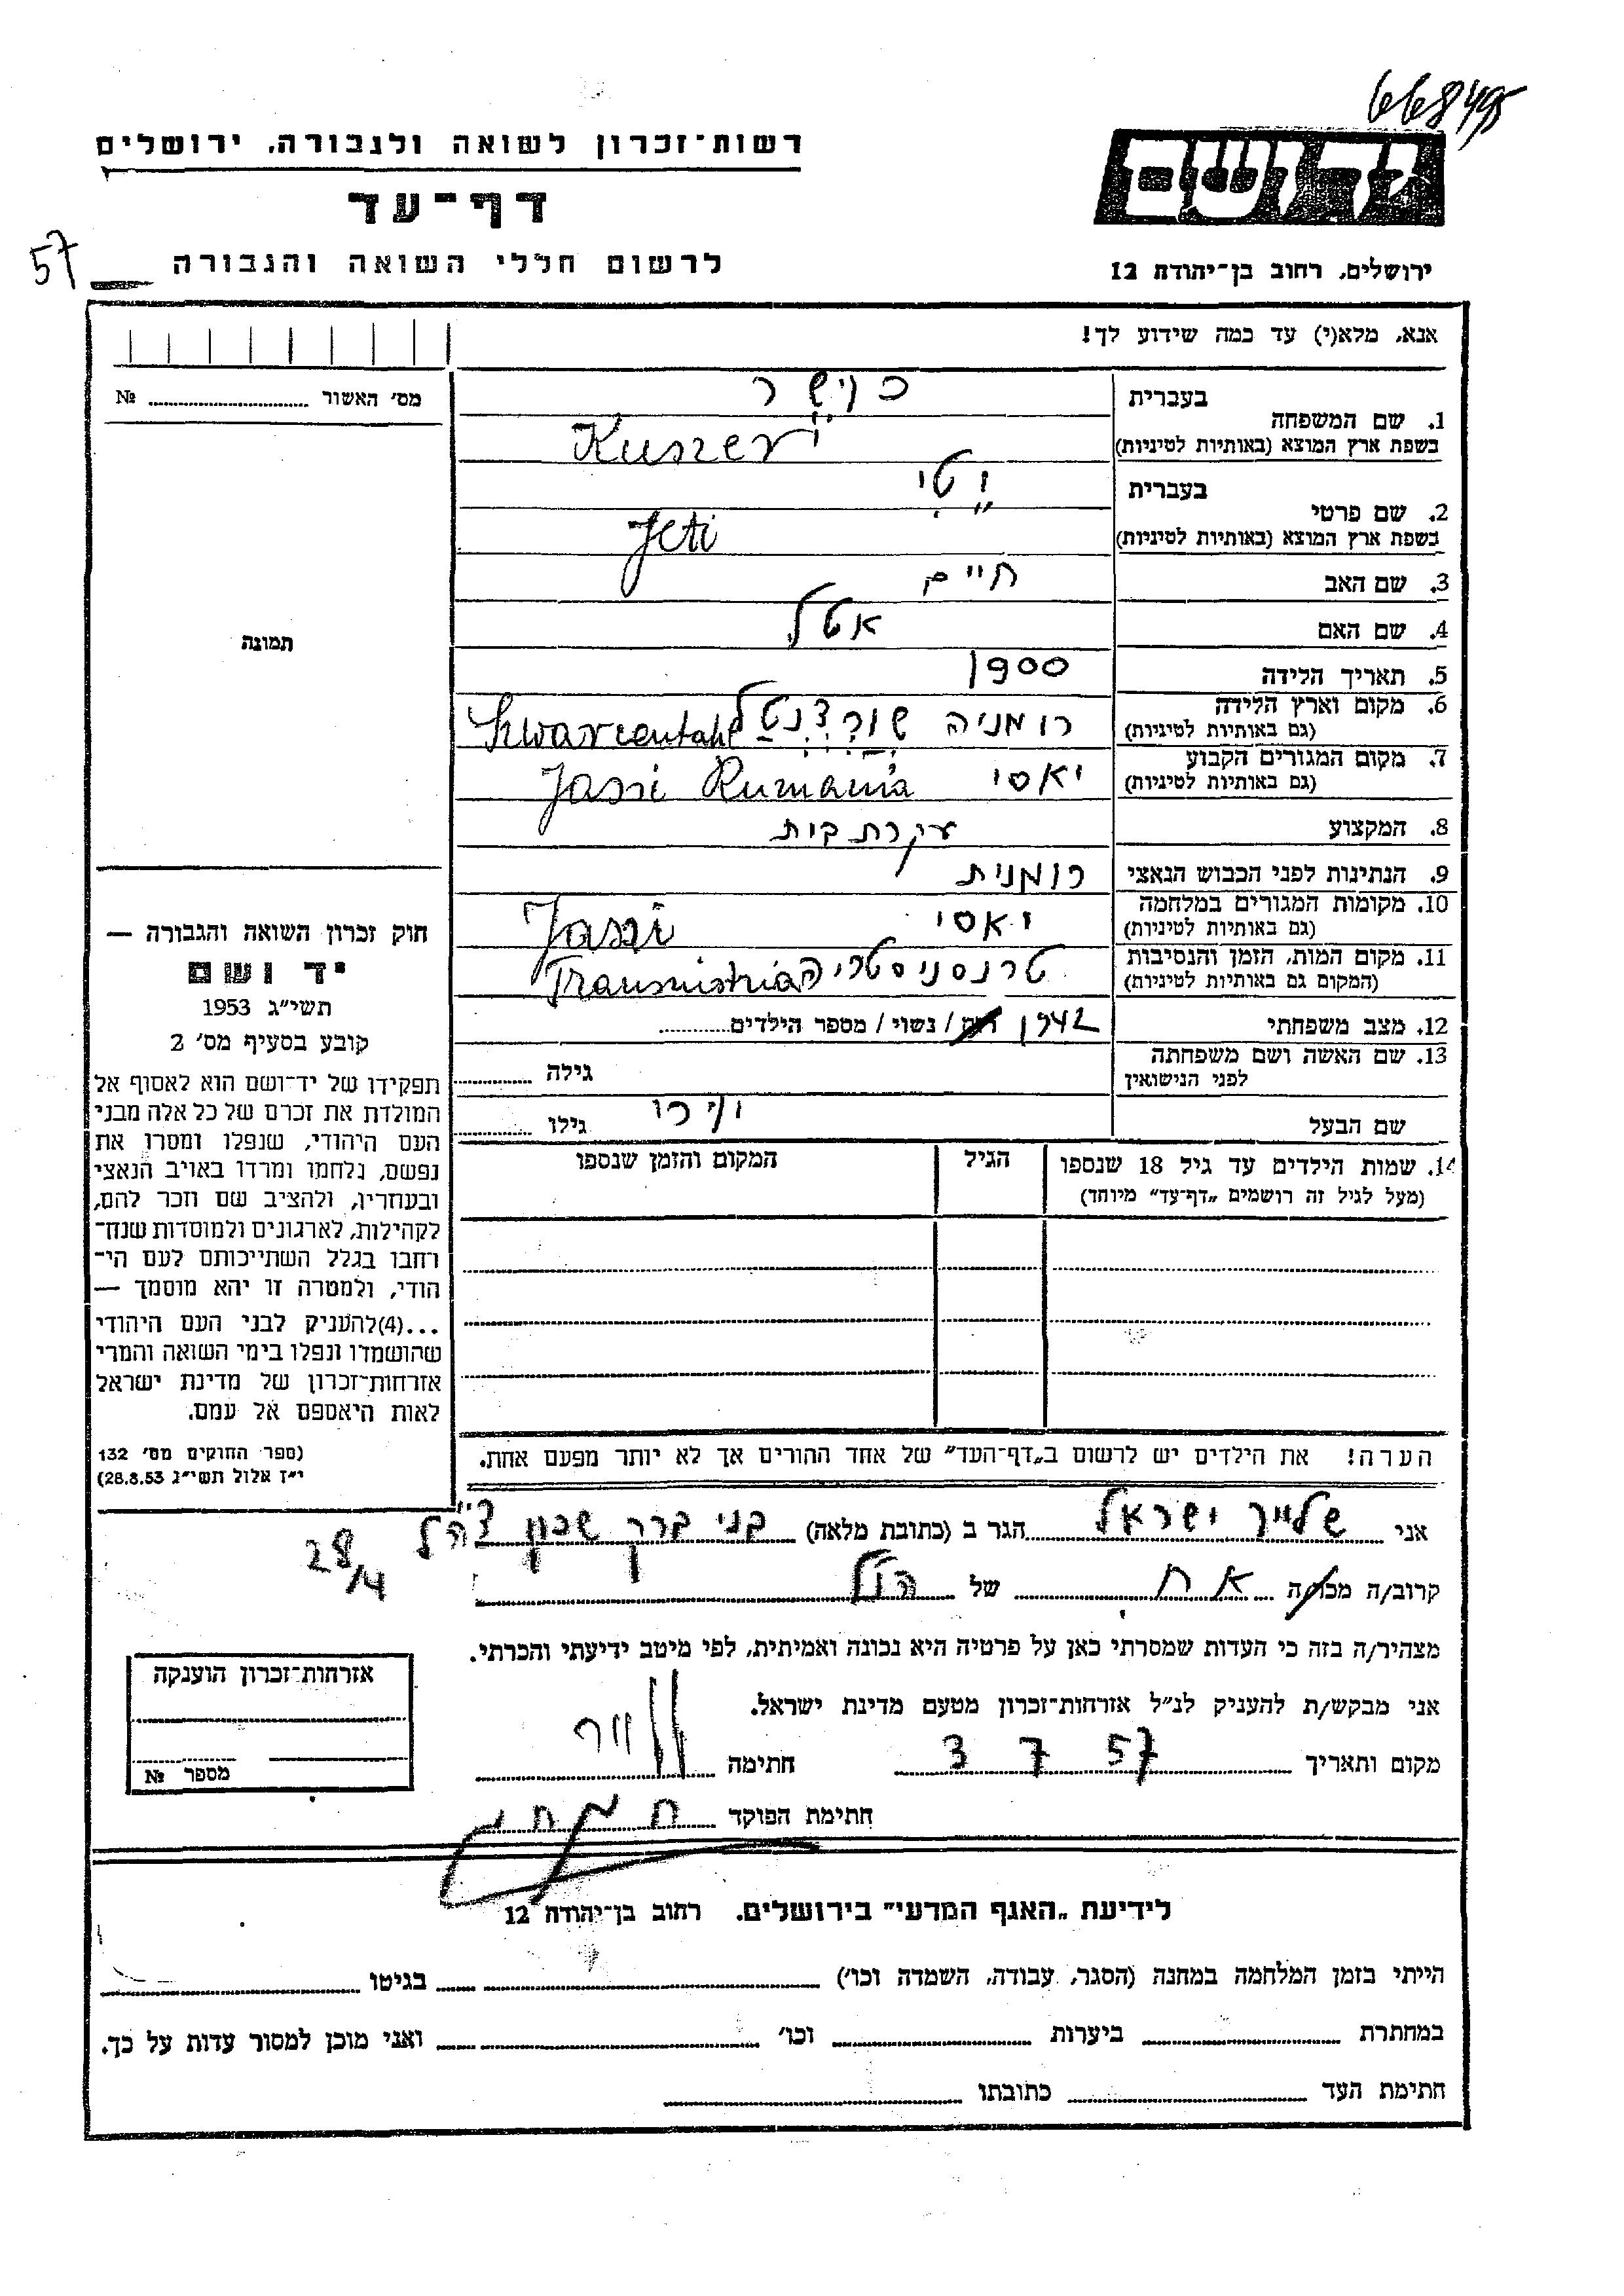 668495
רשות-זכרון לשואה ולגבורה, ירושלים
יד ושם
דף-עד
57
לרשום חללי השואה והגבורה
ירושלים, רחוב בן-יהודה 12
אנא, מלא(י) עד כמה שידוע לך!
מס' האשור № 
1. שם המשפחה בעברית כושר
בשפת ארץ המוצא (באותיות לטיניות) Kuszer
2. שם פרטי בעברית יטי
בשפת ארץ המוצא (באותיות לטיניות) Jeti
3. שם האב חיים
4. שם האם אטל
תמונה
5. תאריך הלידה 1900
6. מקום וארץ הלידה (גם באותיות לטיניות) רומניה שורצנטל Szwarcentahl
7. מקום המגורים הקבוע (גם באותיות לטיניות) יאסי Jassi Rumania
8. המקצוע עקרת בית
9. הנתינות לפני הכבוש הנאצי רומנית
10. מקומות המגורים במלחמה (גם באותיות לטיניות) יאסי Jassi
11. מקום המות, הזמן והנסיבות (המקום גם באותיות לטיניות) טרנסניסטריה Transnistria
12. מצב משפחתי 1942 / נשוי / מספר הילדים
13. שם האשה ושם משפחתה לפני הנישואין גילה
שם הבעל גילו
14. שמות הילדים עד גיל 18 שנספו הגיל המקום והזמן שנספו
(מעל לגיל זה רושמים „דף-עד" מיוחד)
חוק זכרון השואה והגבורה —
יד ושם
תשי"ג 1953
קובע בסעיף מס' 2
תפקידו של יד-ושם הוא לאסוף אל
המולדת את זכרם של כל אלה מבני
העם היהודי, שנפלו ומסרו את
נפשם, נלחמו ומרדו באויב הנאצי
ובעוזריו, ולהציב שם וזכר להם,
לקהילות, לארגונים ולמוסדות שנח-
רבו בגלל השתייכותם לעם הי-
הודי, ולמטרה זו יהא מוסמך —
...(4)להעניק לבני העם היהודי
שהושמדו ונפלו בימי השואה והמרי
אזרחות-זכרון של מדינת ישראל
לאות היאספם אל עמם.
(ספר החוקים מס' 132
י"ז אלול תשי"ג 28.8.53)
הערה! את הילדים יש לרשום ב„דף-העד" של אחד ההורים אך לא יותר מפעם אחת.
אני שלייר ישראל הגר ב (כתובת מלאה) בני ברק שכון צ.ה.ל
28/4
קרוב/ה מכר/ה אח של הנ"ל
מצהיר/ה בזה כי העדות שמסרתי כאן על פרטיה היא נכונה ואמיתית, לפי מיטב ידיעתי והכרתי.
אני מבקש/ת להעניק לנ"ל אזרחות-זכרון מטעם מדינת ישראל.
מקום ותאריך 3 7 57 חתימה
חתימת הפוקד
אזרחות-זכרון הוענקה
מספר №
לידיעת „האגף המדעי" בירושלים, רחוב בן-יהודה 12
הייתי בזמן המלחמה במחנה (הסגר, עבודה, השמדה וכו') בגיטו
במחתרת ביערות וכו' ואני מוכן למסור עדות על כך.
חתימת העד כתובתו